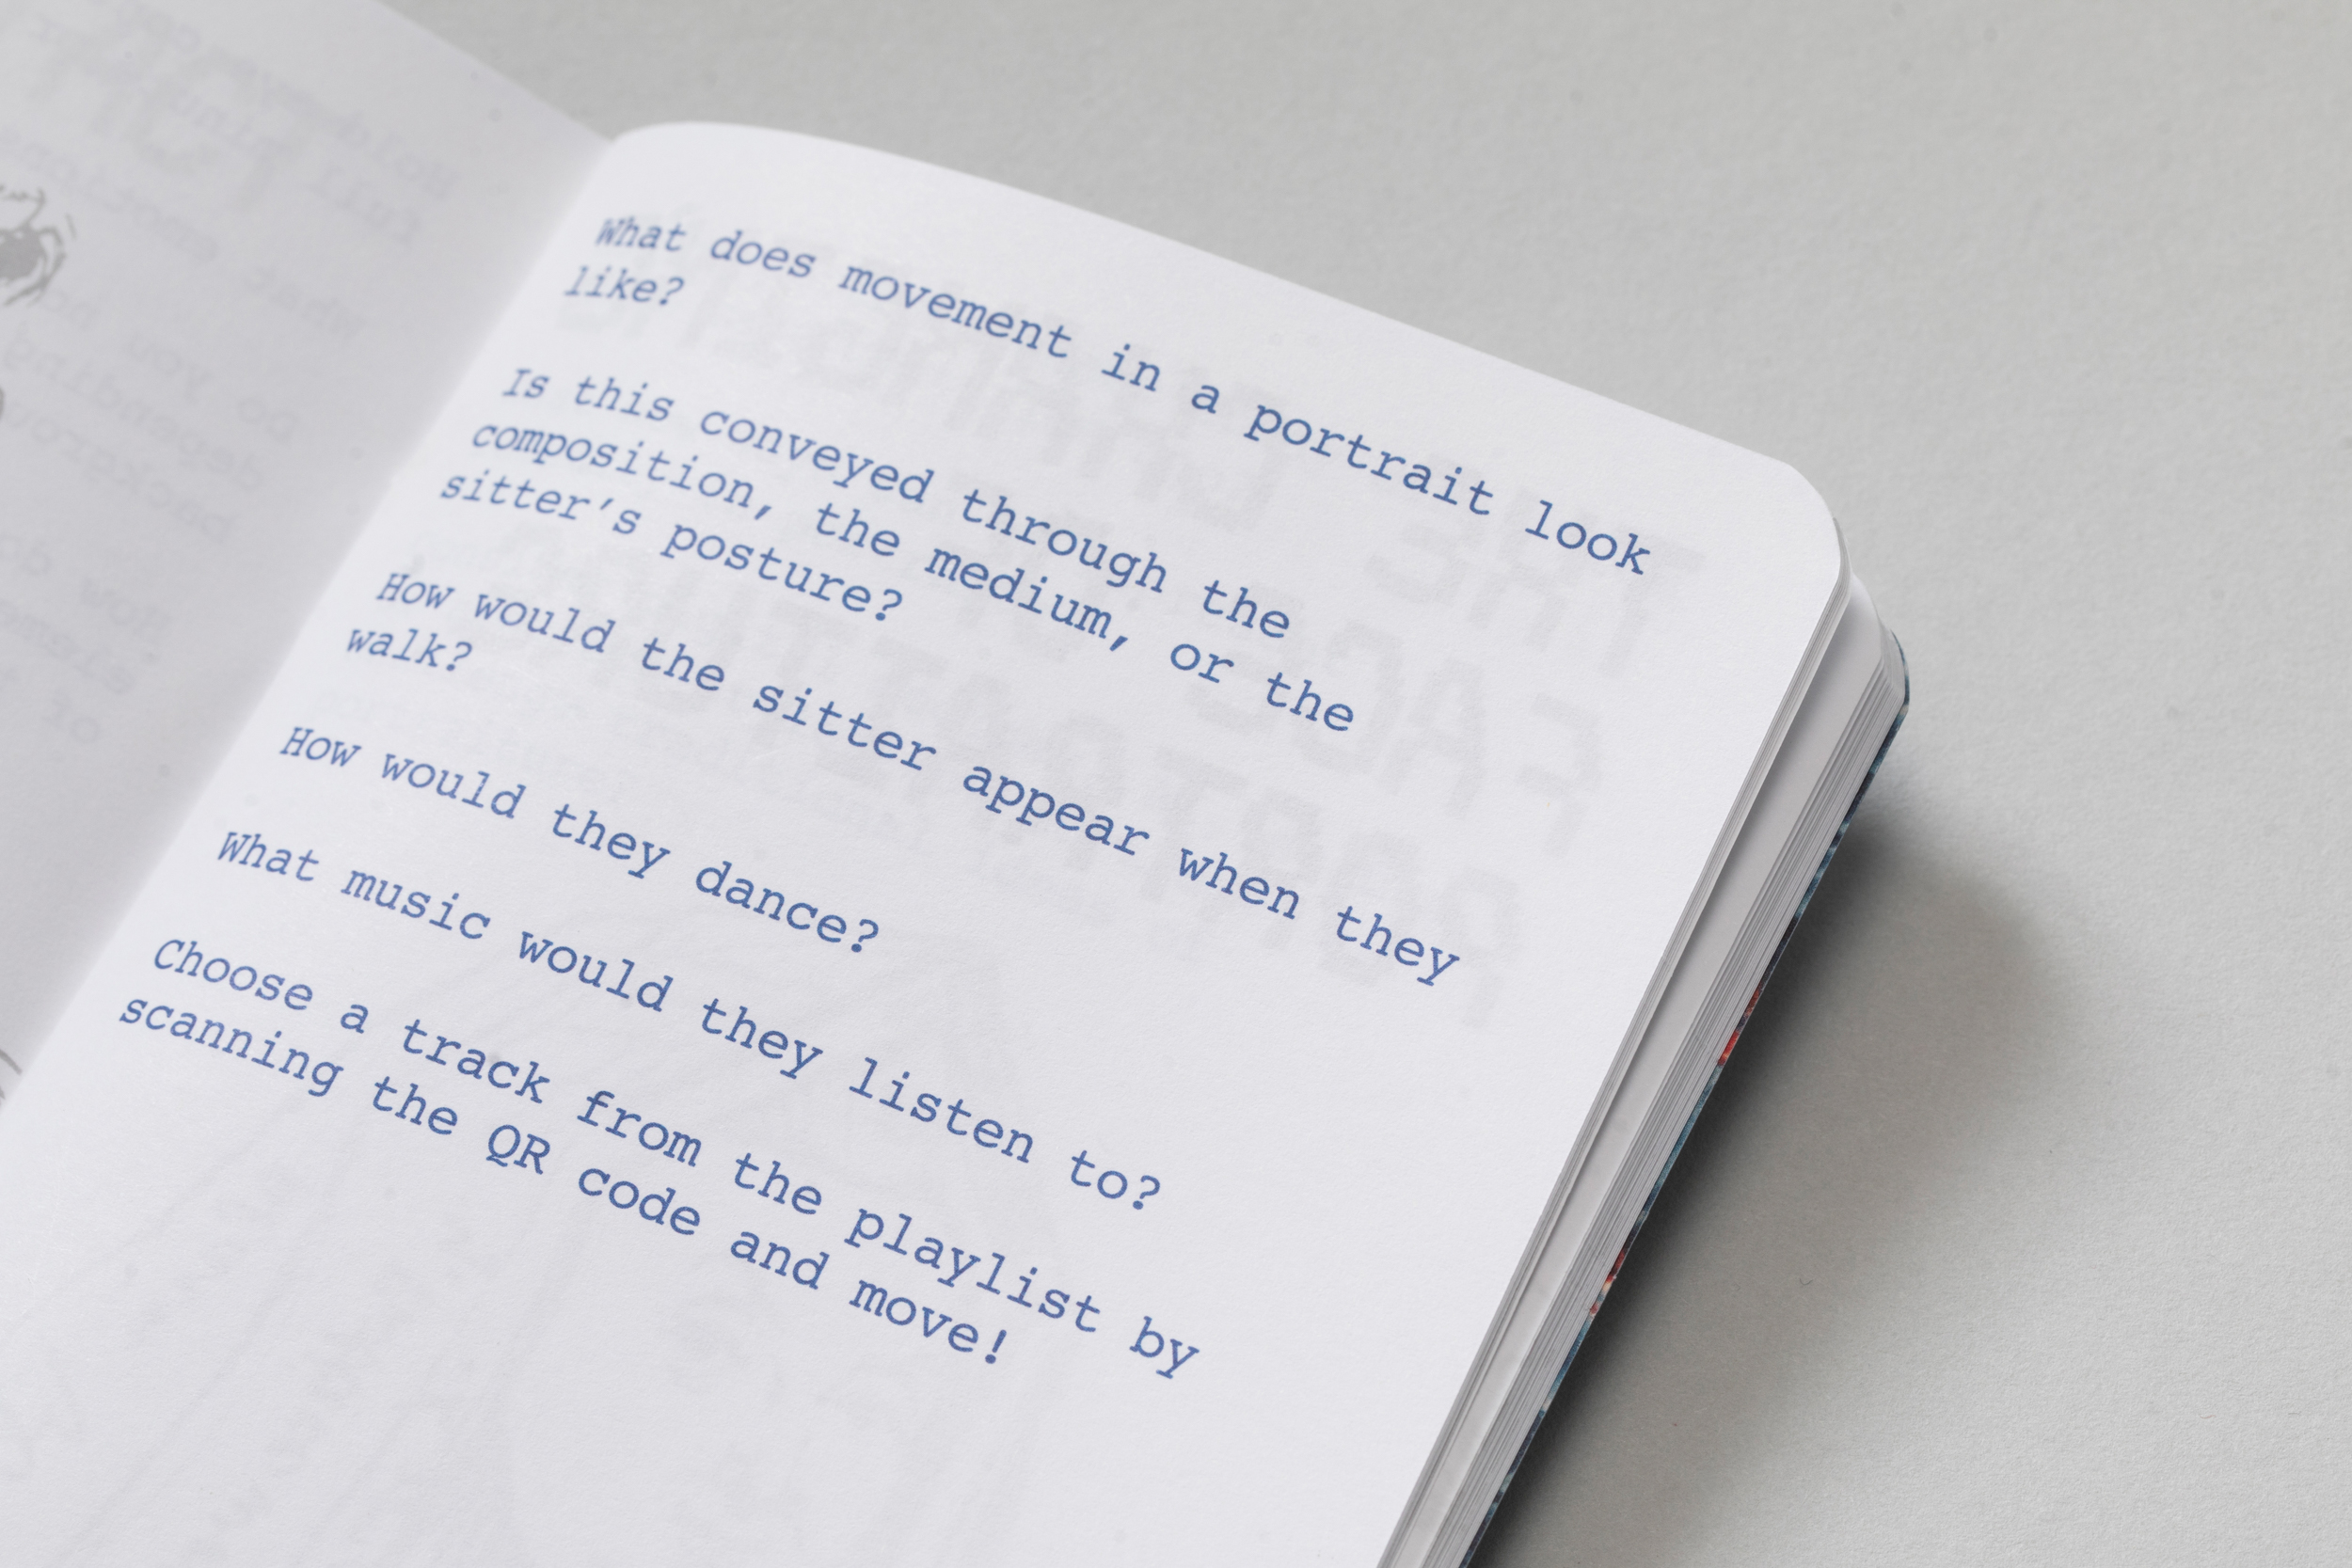 What does movement in a portrait look
like?
Is this conveyed through the
composition, the medium, or the
sitter's posture?
How would the sitter appear when they
walk?
How would they dance?
What music would they listen to?
Choose a track from the playlist by
scanning the QR code and move!